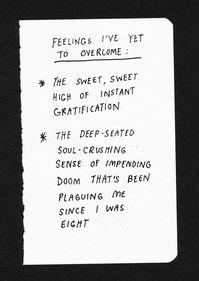 FEELINGS I'VE YET
TO OVERCOME:
* THE SWEET, SWEET
HIGH OF INSTANT
GRATIFICATION
* THE DEEP-SEATED
SOUL-CRUSHING
SENSE OF IMPENDING
DOOM THAT'S BEEN
PLAGUING ME
SINCE I WAS
EIGHT